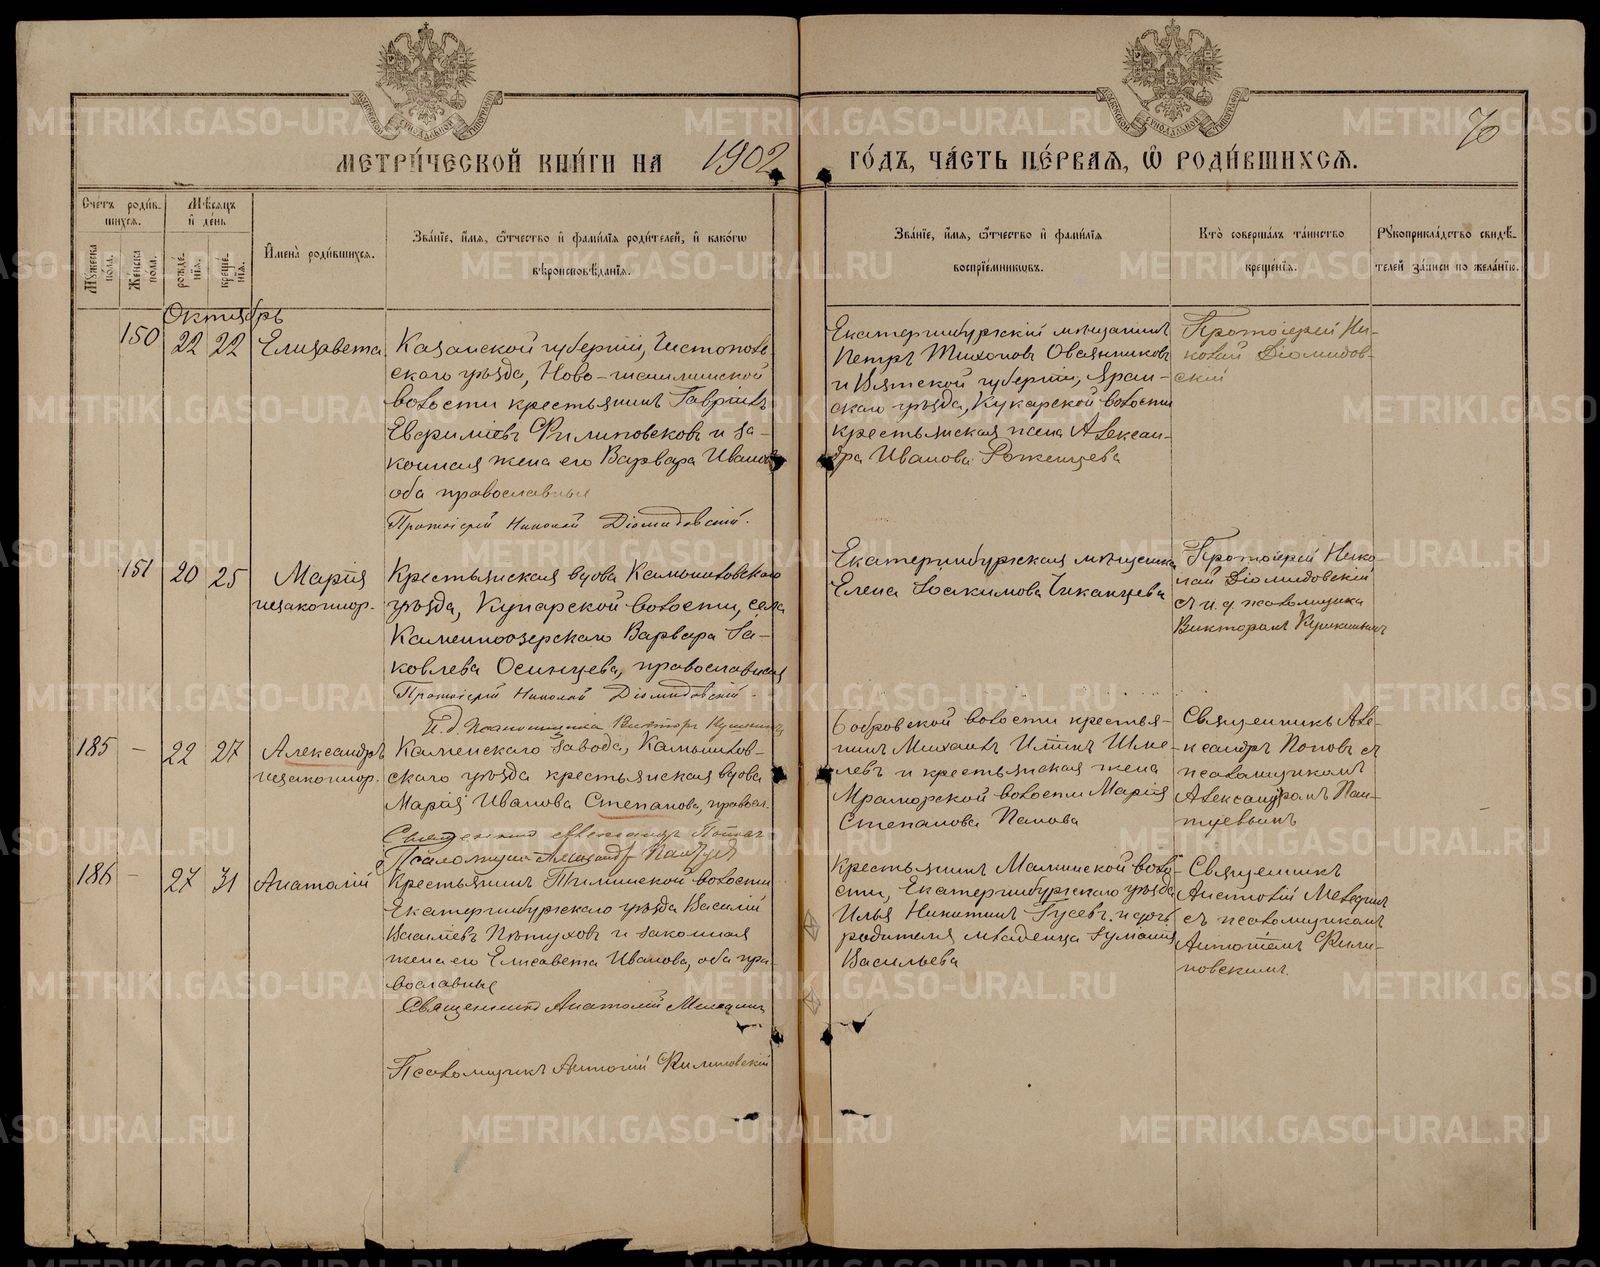 МЕТРИ́ЧЕСКОЙ КНИ́ГИ НА 1902
ГО́ДЪ, ЧА́СТЬ ПЕ́РВАЯ, Ѿ РОДИ́ВШИХСЯ.
70
Сче́тъ роди́в-
шихся.
Мѣ́сяцъ
и де́нь
Му́жеска
пола.
Же́нска
по́ла.
рожде́-
нія.
креще́-
нія.
Имена̀ роди́вшихся.
Зва́ніе, и́мя, ѻ́тчество и фами́лія роди́телей, и како́гѡ
вѣроисповѣ́данія.
Зва́ніе, и́мя, ѻ́тчество и фами́лія
воспріе́мникѡвъ.
Кто̀ соверша́лъ та́инство
креще́нія.
Рукоприкла́дство свидѣ́-
телей за́писи по жела́нію.
Октябрь
150 22 22 Елизавета
Казанской губерніи, Чистополь-
скаго уѣзда, Ново-
волости крестьянинъ Гавріилъ
Евфиміевъ Филиповсковъ и за-
конная жена его Варвара Иванова
оба православные
Протоіерей Николай Діомидовскій.
Екатеринбургскій мѣщанинъ
Петръ Тихоновъ Овсянниковъ
и Вятской губерніи, Яран-
скаго уѣзда, Кукарской волости
крестьянская жена Алексан-
дра Иванова Роженцева
Протоіерей Ни-
колай Діомидов-
скій
151 20 25 Марія
незаконнор.
Крестьянская вдова Камышловскаго
уѣзда, Купарской волости, села
Каменноозерскаго Варвара Я-
ковлева Осинцева, православная
Протоіерей Николай Діомидовскій.
И. д. псаломщика Викторъ
Екатеринбургская мѣщанка
Елена Іоакимова Чиканцева
Протоіерей Нико-
лай Діомидовскій
съ и. д. псаломщика
Викторомъ
185 – 22 27 Александръ
незаконнор.
Каменскаго завода, Камышлов-
скаго уѣзда крестьянская вдова
Марія Иванова Степанова, правосл.
Священникъ Александръ Поповъ
Псаломщикъ Александръ
Бобровской волости крестья-
нинъ Михаилъ Ильинъ Шме-
левъ и крестьянская жена
Мраморской волости Марія
Степанова Попова
Священникъ Але-
ксандръ Поповъ съ
псаломщикомъ
Александромъ Пан-
186 – 27 31 Анатолій
Крестьянинъ Тиминской волости
Екатеринбургскаго уѣзда Василій
Васильевъ Пѣтуховъ и законная
жена его Елисавета Иванова, оба пра-
вославные
Священникъ Анатолій
Псаломщикъ Антоній Филиповскій
Крестьянинъ Малминской воло-
сти, Екатеринбургскаго уѣзда
Илья Никитинъ Гусевъ и дочь
родителя младенца Іуліанія
Васильева
Священникъ
Анатолій
съ псаломщикомъ
Антоніемъ Фили-
повскимъ.
METRIKI.GASO-URAL.RU